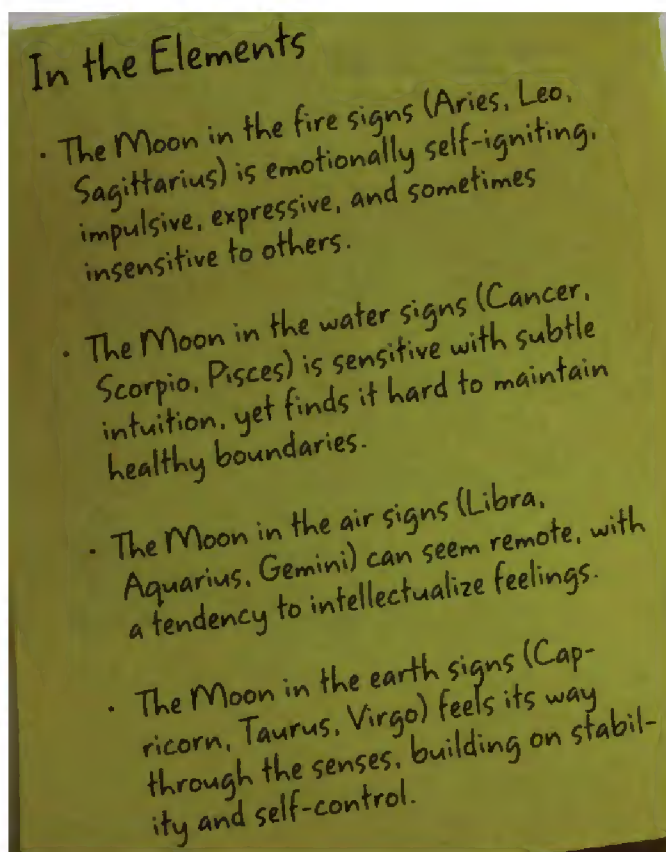 In the Elements
· The Moon in the fire signs (Aries, Leo,
Sagittarius) is emotionally self-igniting,
impulsive, expressive, and sometimes
insensitive to others.
· The Moon in the water signs (Cancer,
Scorpio, Pisces) is sensitive with subtle
intuition, yet finds it hard to maintain
healthy boundaries.
· The Moon in the air signs (Libra,
Aquarius, Gemini) can seem remote, with
a tendency to intellectualize feelings.
· The Moon in the earth signs (Cap-
ricorn, Taurus, Virgo) feels its way
through the senses, building on stabil-
ity and self-control.